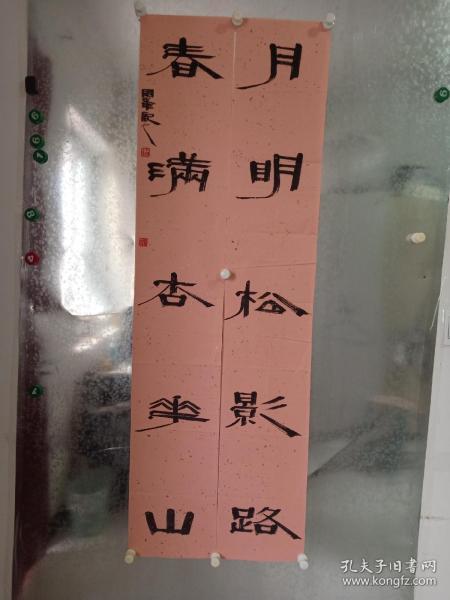 月明松影路
春满杏华山
孔夫子旧书网
www.kongfz.com